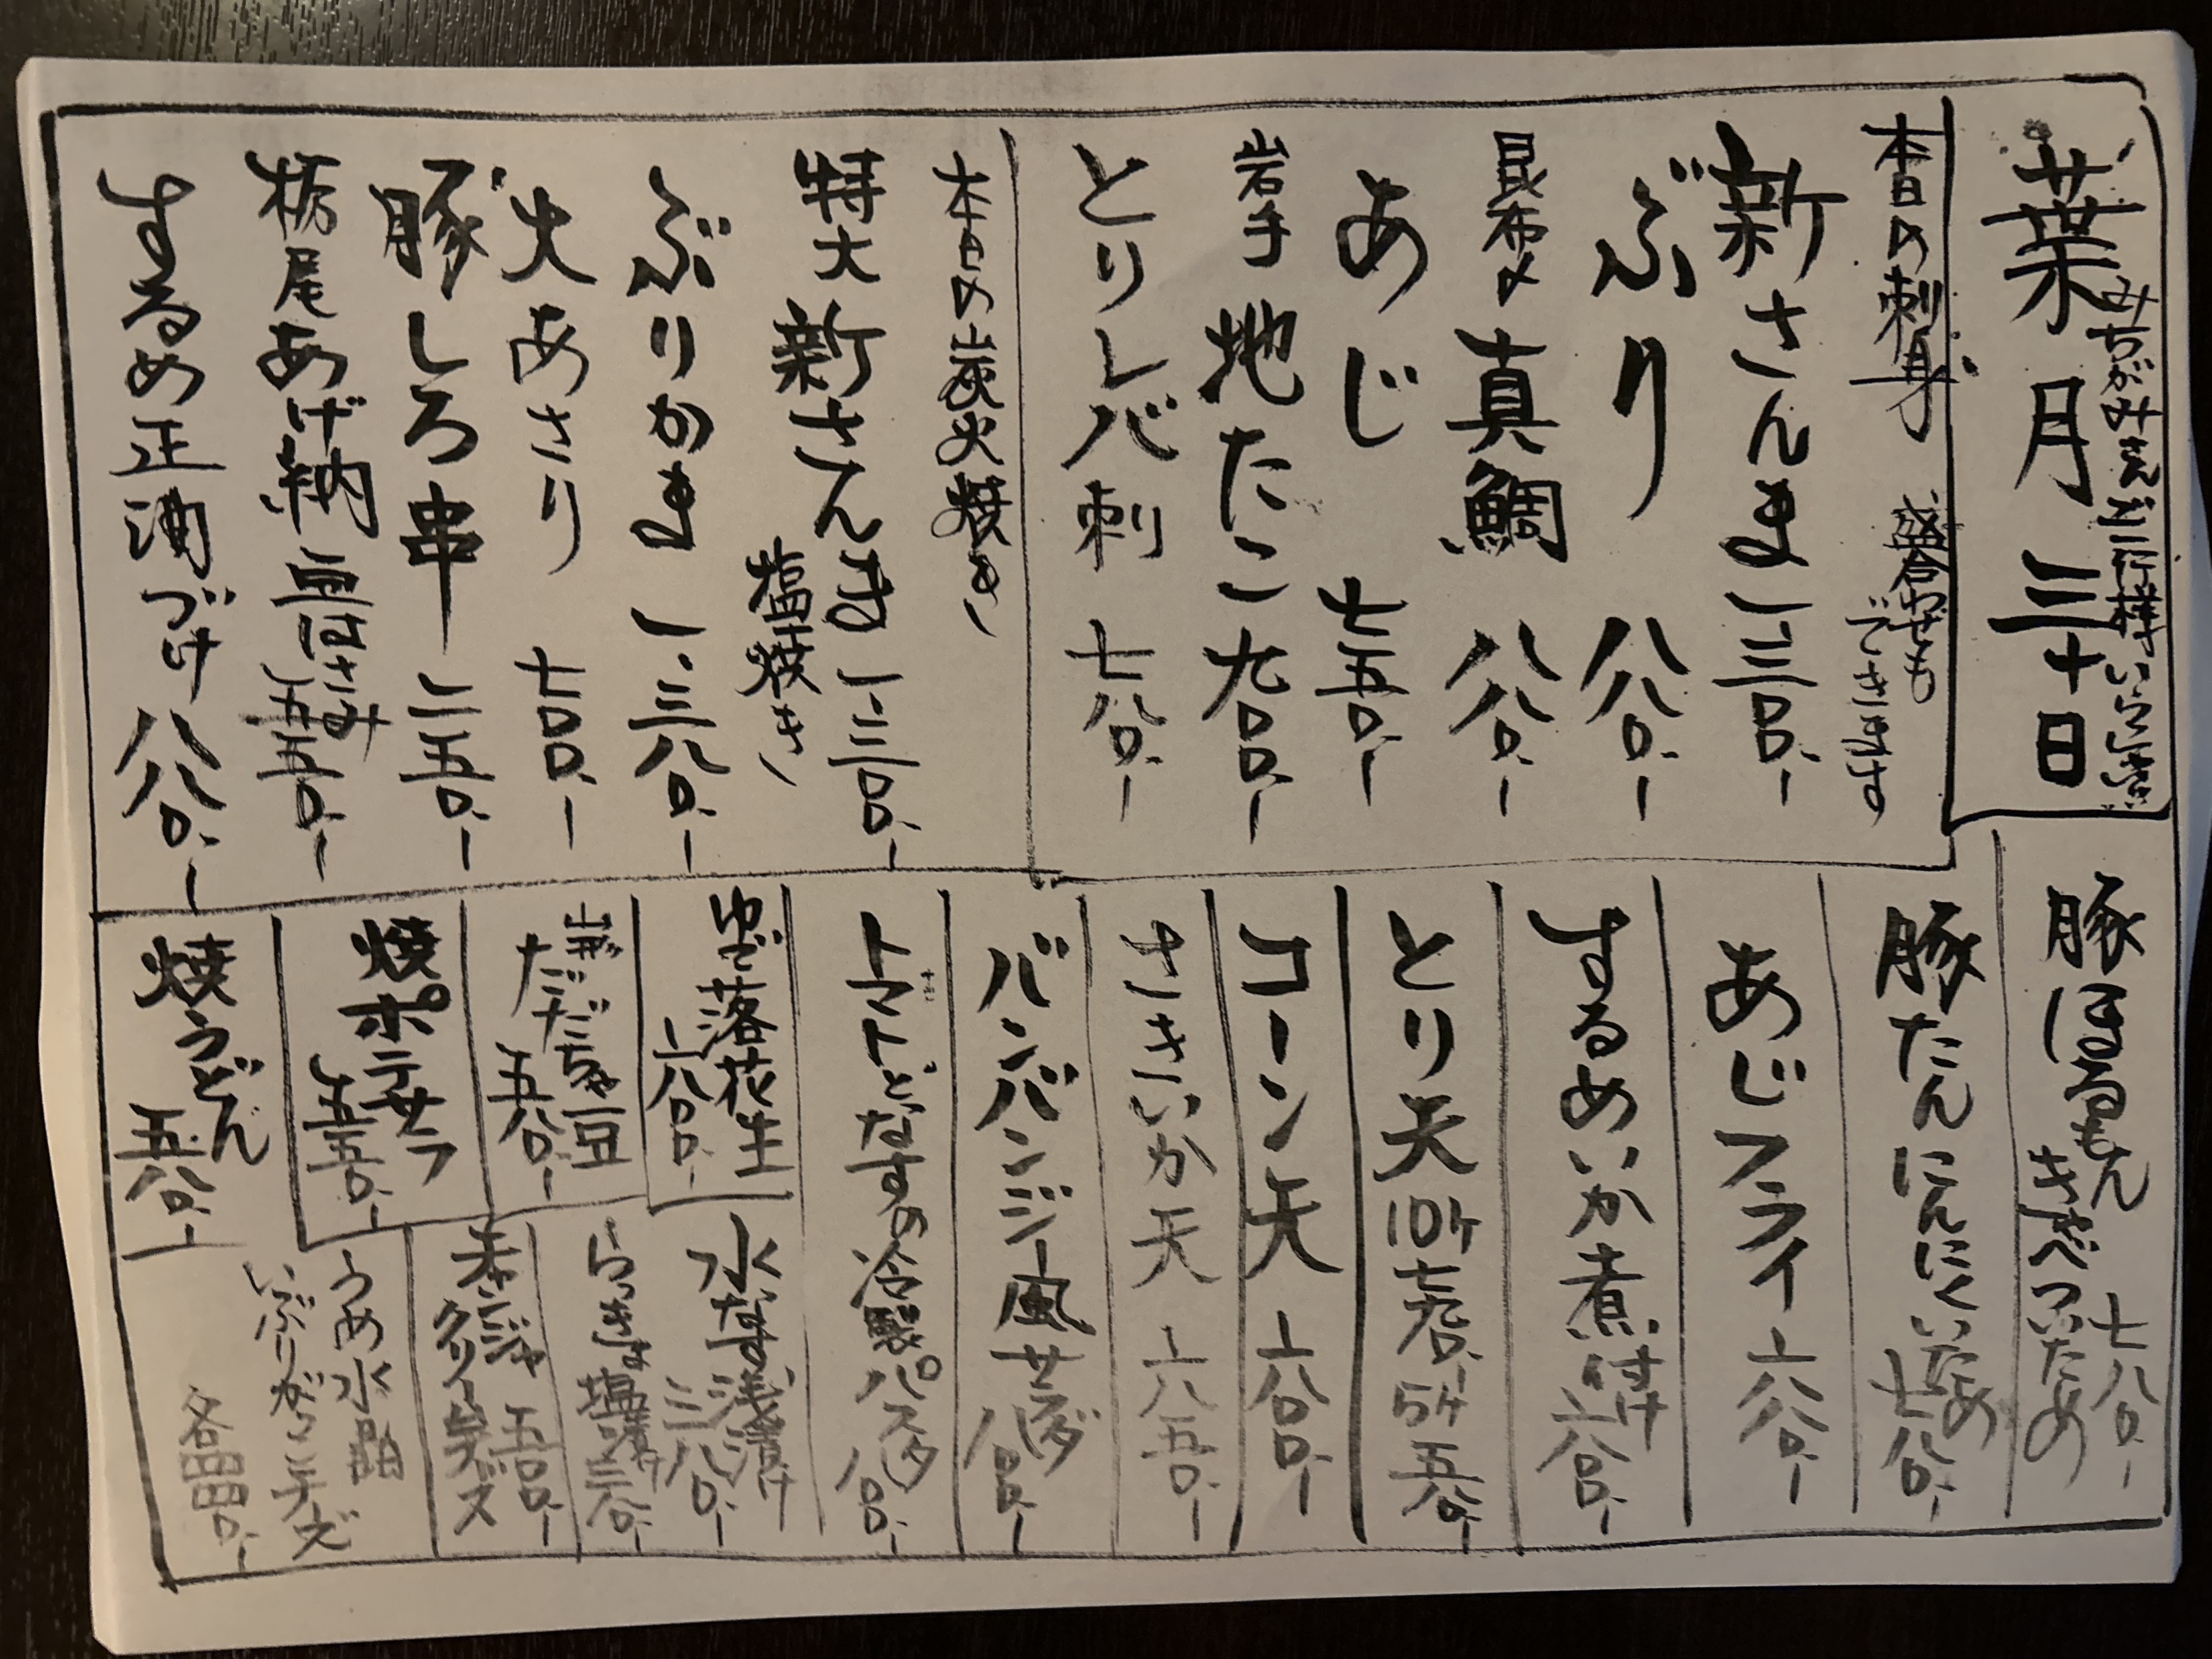 葉月三十日
本日の刺身
盛合わせも
できます
新さんま 一、三〇〇、ー
ぶり 八八〇、ー
昆布〆 真鯛 八八〇、ー
あじ 七五〇、ー
岩手 地たこ 九〇〇、ー
とりレバ刺 七八〇、ー
本日の炭火焼き
特大 新さんま 一、三〇〇、ー
塩焼き
ぶりかま 一、三八〇、ー
大あさり 七〇〇、ー
豚しろ串 二五〇、ー
栃尾あげ納豆はさみ 五五〇、ー
するめ正油づけ 八八〇、ー
豚ほるもん
きゃべついため
七八〇、ー
豚たんにんにくいため
七八〇、ー
あじフライ 六八〇、ー
するめいか煮付け
六八〇、ー
とり天 10ケ 5ケ
コーン天 六八〇、ー
さきいか天 六五〇、ー
バンバンジー風サラダ
トマトとなすの冷製パスタ
ゆで落花生
六八〇、ー
だだちゃ豆
五八〇、ー
焼ポテサラ
五五〇、ー
焼うどん
五八〇、ー
水なす浅漬け
三八〇、ー
らっきょ塩漬け
チャンジャ 五〇〇、ー
クリームチーズ
うめ水晶
いぶりがっこチーズ
各四四〇、ー